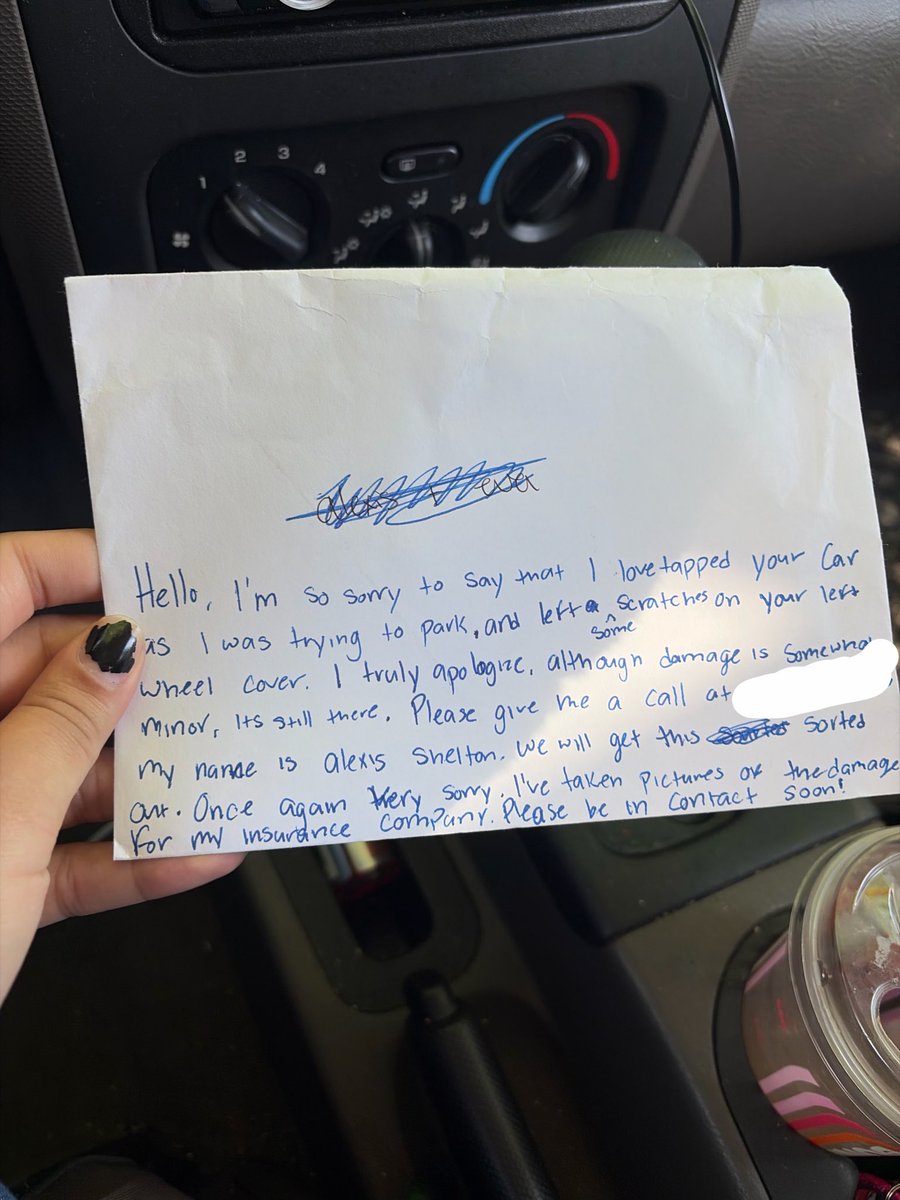 1 2 3 4
Hello, I'm so sorry to say that I love tapped your car
as I was trying to park, and left some scratches on your left
wheel cover. I truly apologize, although damage is somewha
minor, its still there. Please give me a call at
my name is alexis shelton. we will get this sorted
out. Once again very sorry. I've taken pictures of the damage
for my insurance company. Please be in contact soon!